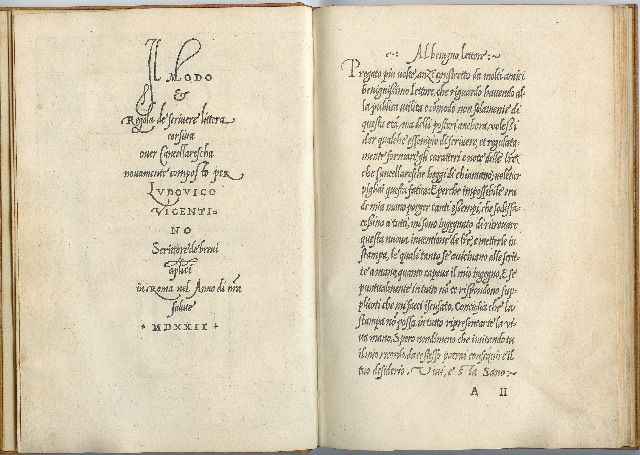 Il MODO
&
Regola de scrivere littera
corsiva
over Cancellarescha
novamente composto per
LVDOVICO
VICENTI=
NO
Scrittore de brevi
aplici
in Roma nel Anno di nra
salute
+ MDXXII +
Al benigno lettore:~
Pregato piu volte, anzi constretto da molti amici
benignissimo Lettore, che riguardo havendo al=
la publica utilita e cōmodo non solamente di
questa età, ma delli posteri anchora, volessi
dar qualche essempio di scrivere, et regulata=
mente formare gli caratteri e note delle lr̄e,
che Cancellaresche hoggi di chiamano, voletier
pigliai questa fatica: E perche impossibile era
de mia mano porger tanti essempi, che sodisfa=
cessino a tutti, mi sono ingegnato di ritrovare
questa nuova inventione de lr̄e, e metterle in
stampa, le quali tanto se avicinano alle scrit=
te a mano, quanto capeva il mio ingegno, E se
puntualmente in tutto nō te rispondono, sup=
plicoti che mi facci iscusato, Conciosia che la
stampa no possa in tutto ripresentarte la vi=
va mano, Spero nondimeno che imitando tu
il mio ricordo, da te stesso potrai consequire il
tuo desiderio. Vivi, e stà Sano:~
A II